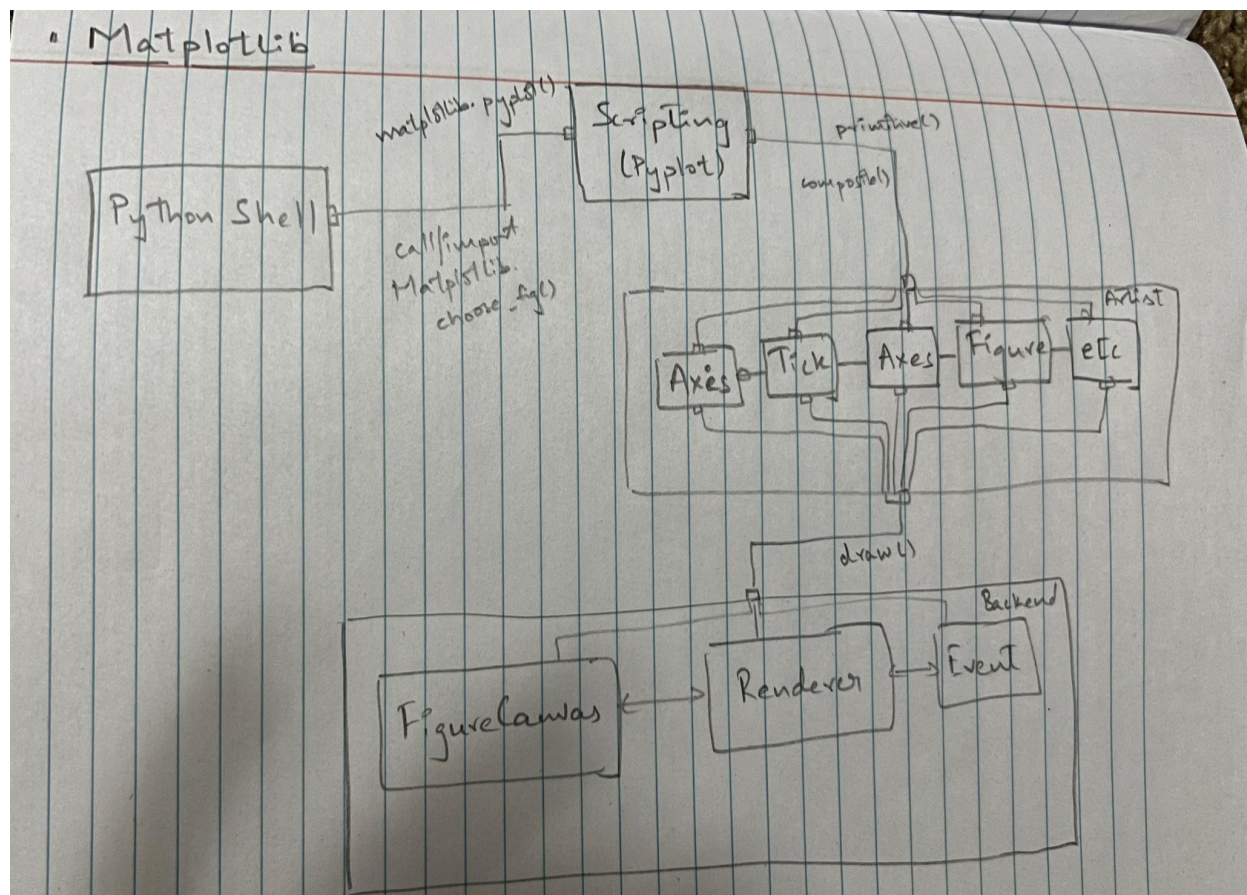 • Matplotlib
matplotlib.pyplot()
Scripting
(Pyplot)
primitive()
composite()
Python Shell
call/import
Matplotlib.
choose_fig()
Artist
Axes
Tick
Axes
Figure
etc
draw()
Backend
FigureCanvas
Renderer
Event